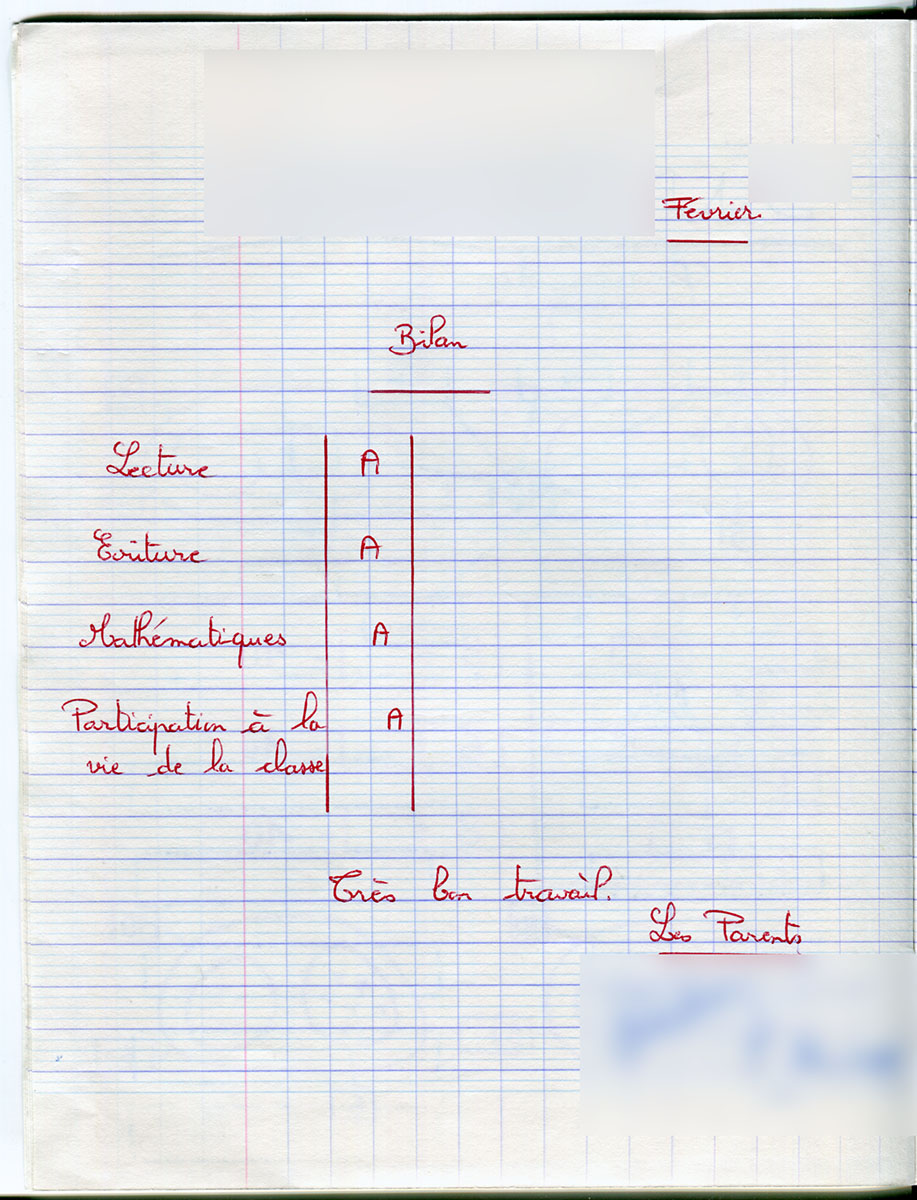 Février
Bilan
Lecture A
Ecriture A
Mathématiques A
Participation à la A
vie de la classe
Très bon travail.
Les Parents